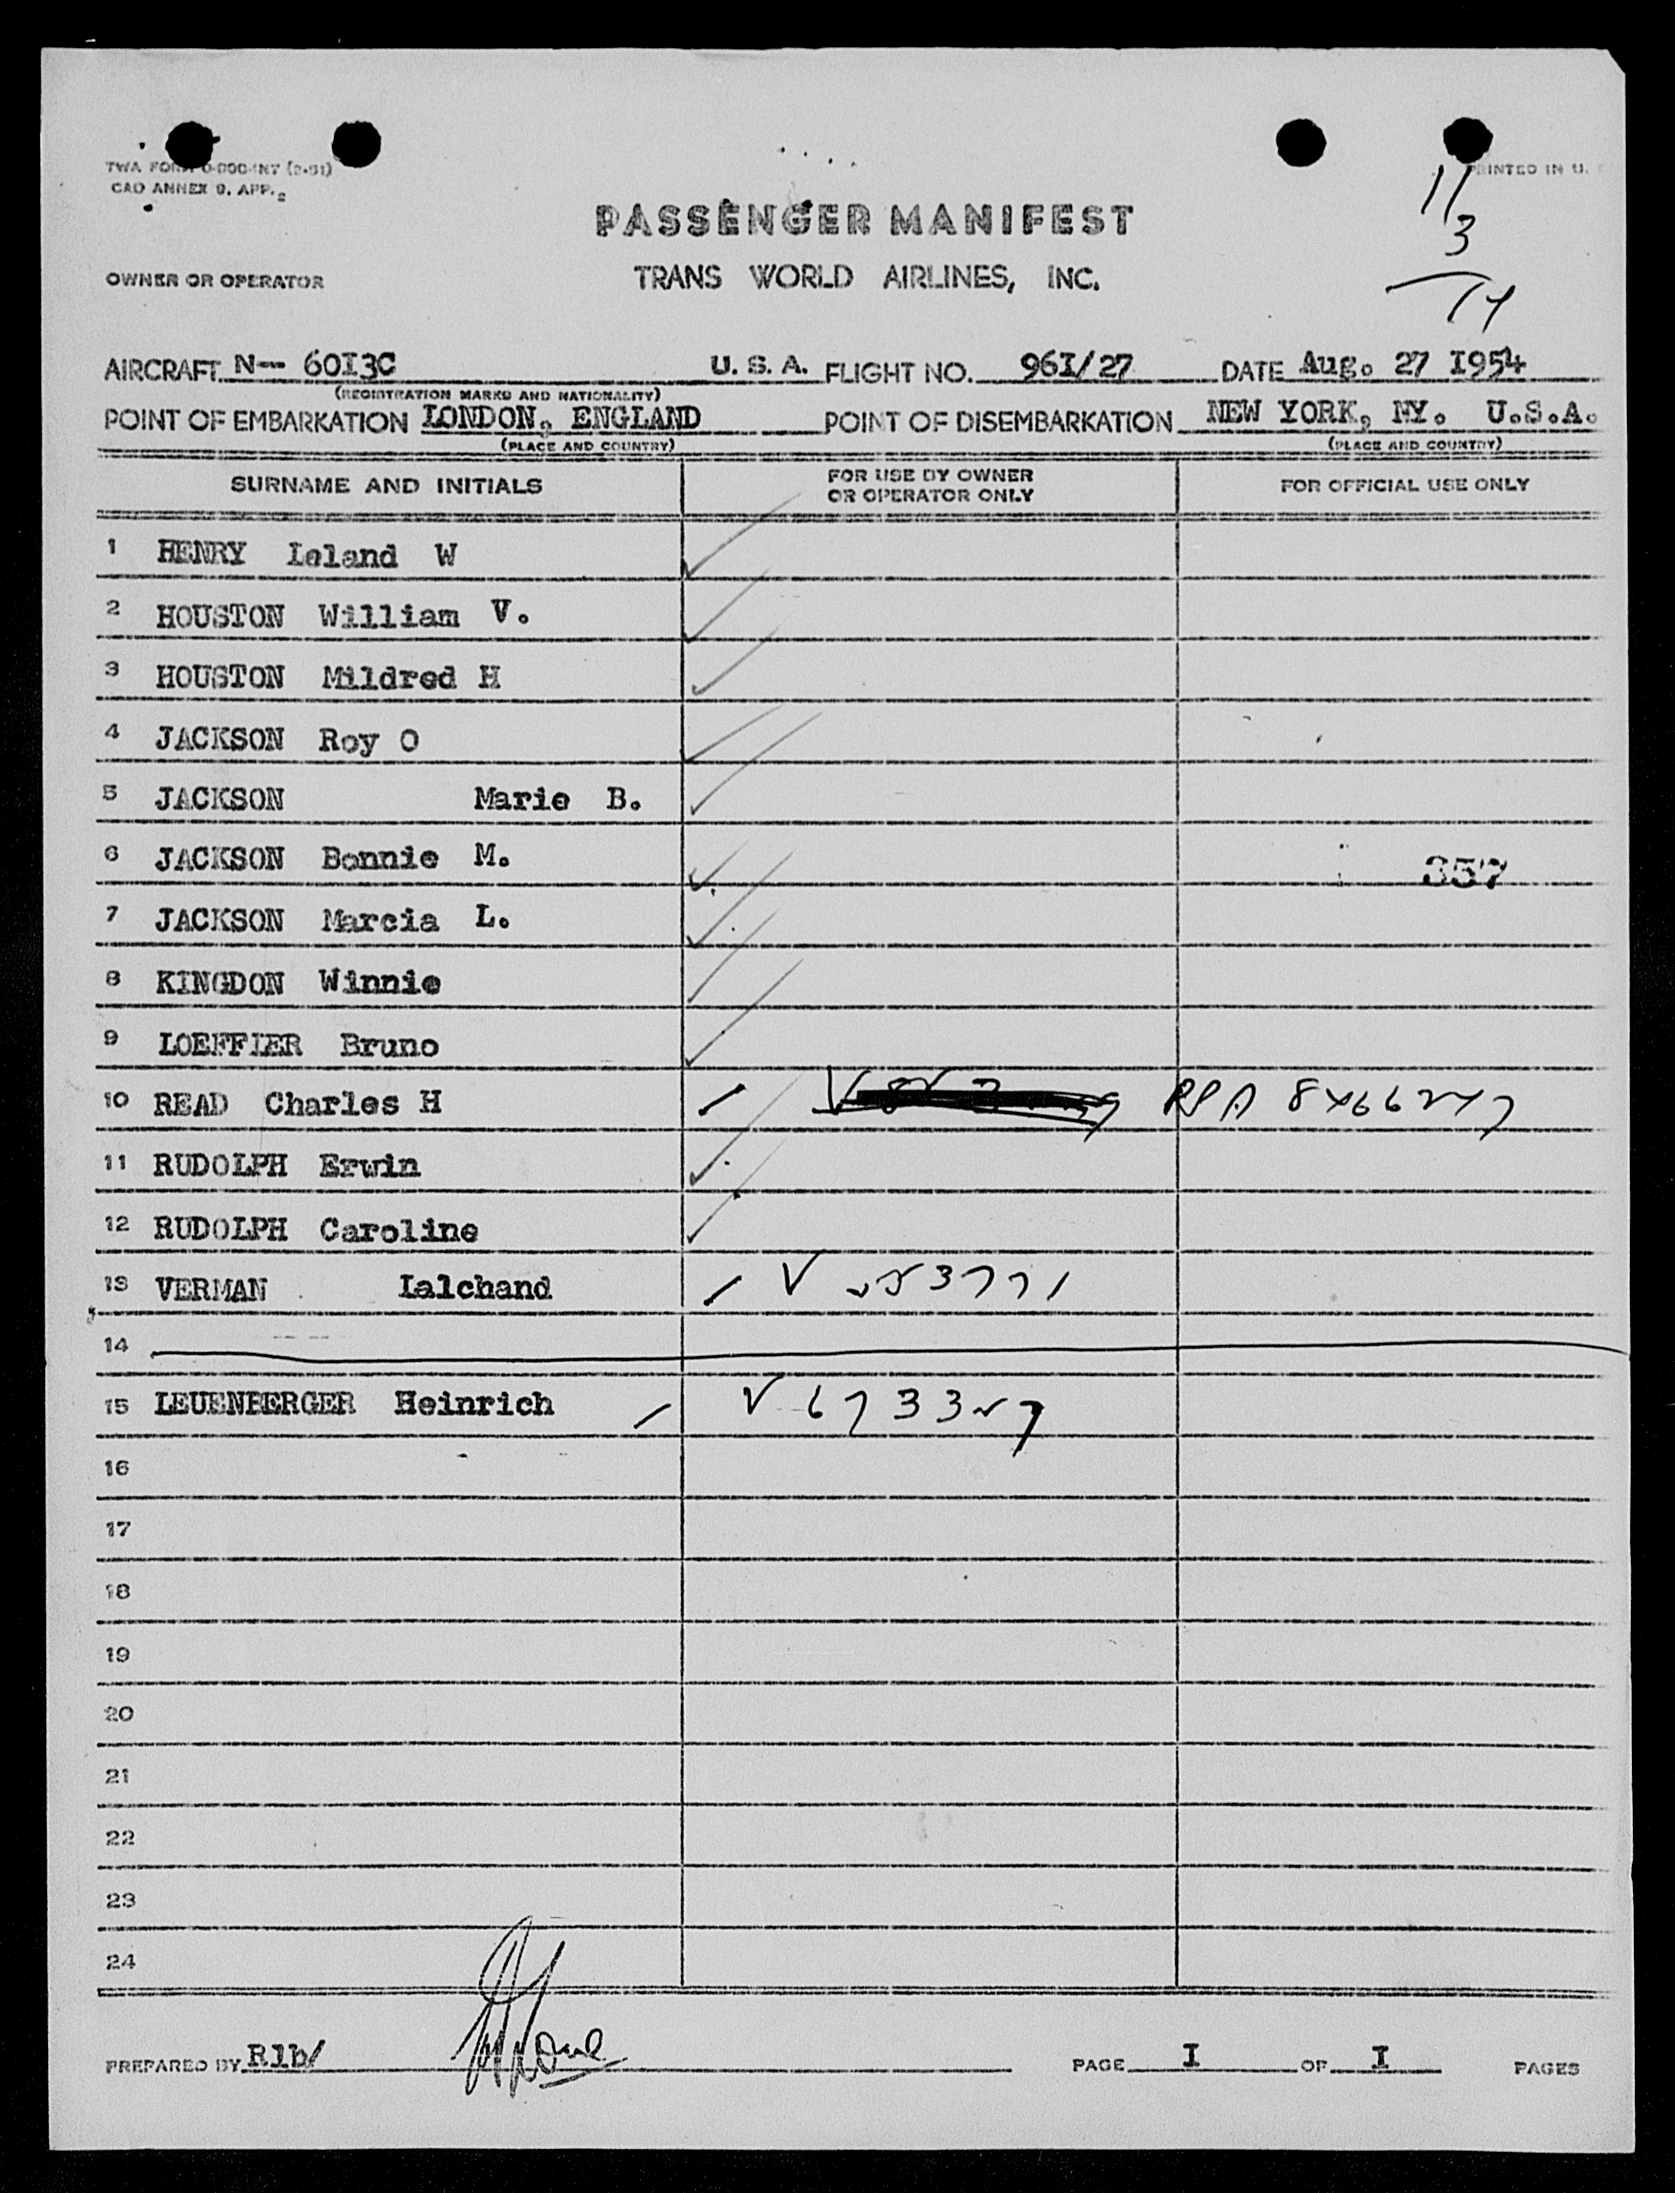 PRINTED IN U.
CAO ANNEX 9, APP. 2
11
3
14
PASSENGER MANIFEST
OWNER OR OPERATOR
TRANS WORLD AIRLINES, INC.
AIRCRAFT N-- 60I3C U. S. A. FLIGHT NO. 96I/27 DATE Aug. 27 I954
(REGISTRATION MARKS AND NATIONALITY)
POINT OF EMBARKATION LONDON, ENGLAND POINT OF DISEMBARKATION NEW YORK, NY. U.S.A.
(PLACE AND COUNTRY) (PLACE AND COUNTRY)
SURNAME AND INITIALS FOR USE BY OWNER OR OPERATOR ONLY FOR OFFICIAL USE ONLY
1 HENRY Leland W
2 HOUSTON William V.
3 HOUSTON Mildred H
4 JACKSON Roy O
5 JACKSON Marie B.
6 JACKSON Bonnie M. 357
7 JACKSON Marcia L.
8 KINGDON Winnie
9 LOEFFLER Bruno
10 READ Charles H
11 RUDOLPH Erwin
12 RUDOLPH Caroline
13 VERMAN Lalchand
14
15 LEUENBERGER Heinrich V 673327
16
17
18
19
20
21
22
23
24
PREPARED BY Rlb/ PAGE I OF I PAGES